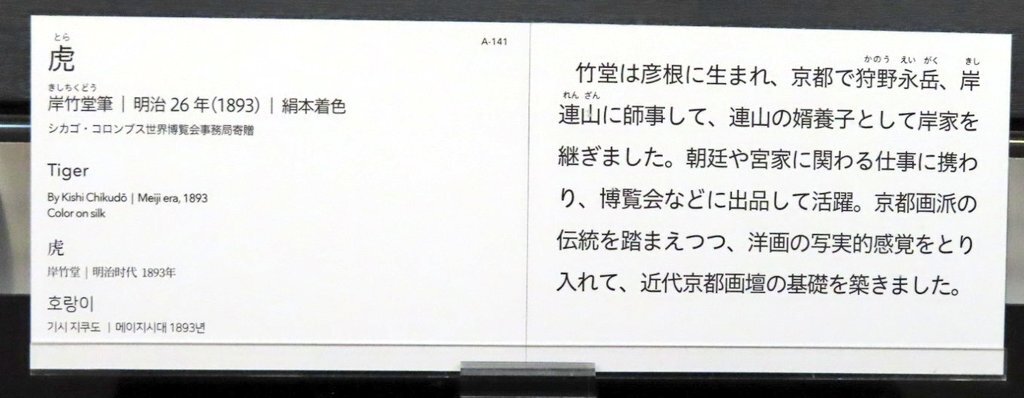 とら
虎
A-141
きしちくどう
岸竹堂筆｜明治 26 年（1893）｜絹本着色
シカゴ・コロンブス世界博覧会事務局寄贈
Tiger
By Kishi Chikudō | Meiji era, 1893
Color on silk
虎
岸竹堂｜明治时代 1893年
호랑이
기시 지쿠도 | 메이지시대 1893년
かのう えい がく きし
竹堂は彦根に生まれ、京都で狩野永岳、岸
れん ざん
連山に師事して、連山の婿養子として岸家を
継ぎました。朝廷や宮家に関わる仕事に携わ
り、博覧会などに出品して活躍。京都画派の
伝統を踏まえつつ、洋画の写実的感覚をとり
入れて、近代京都画壇の基礎を築きました。